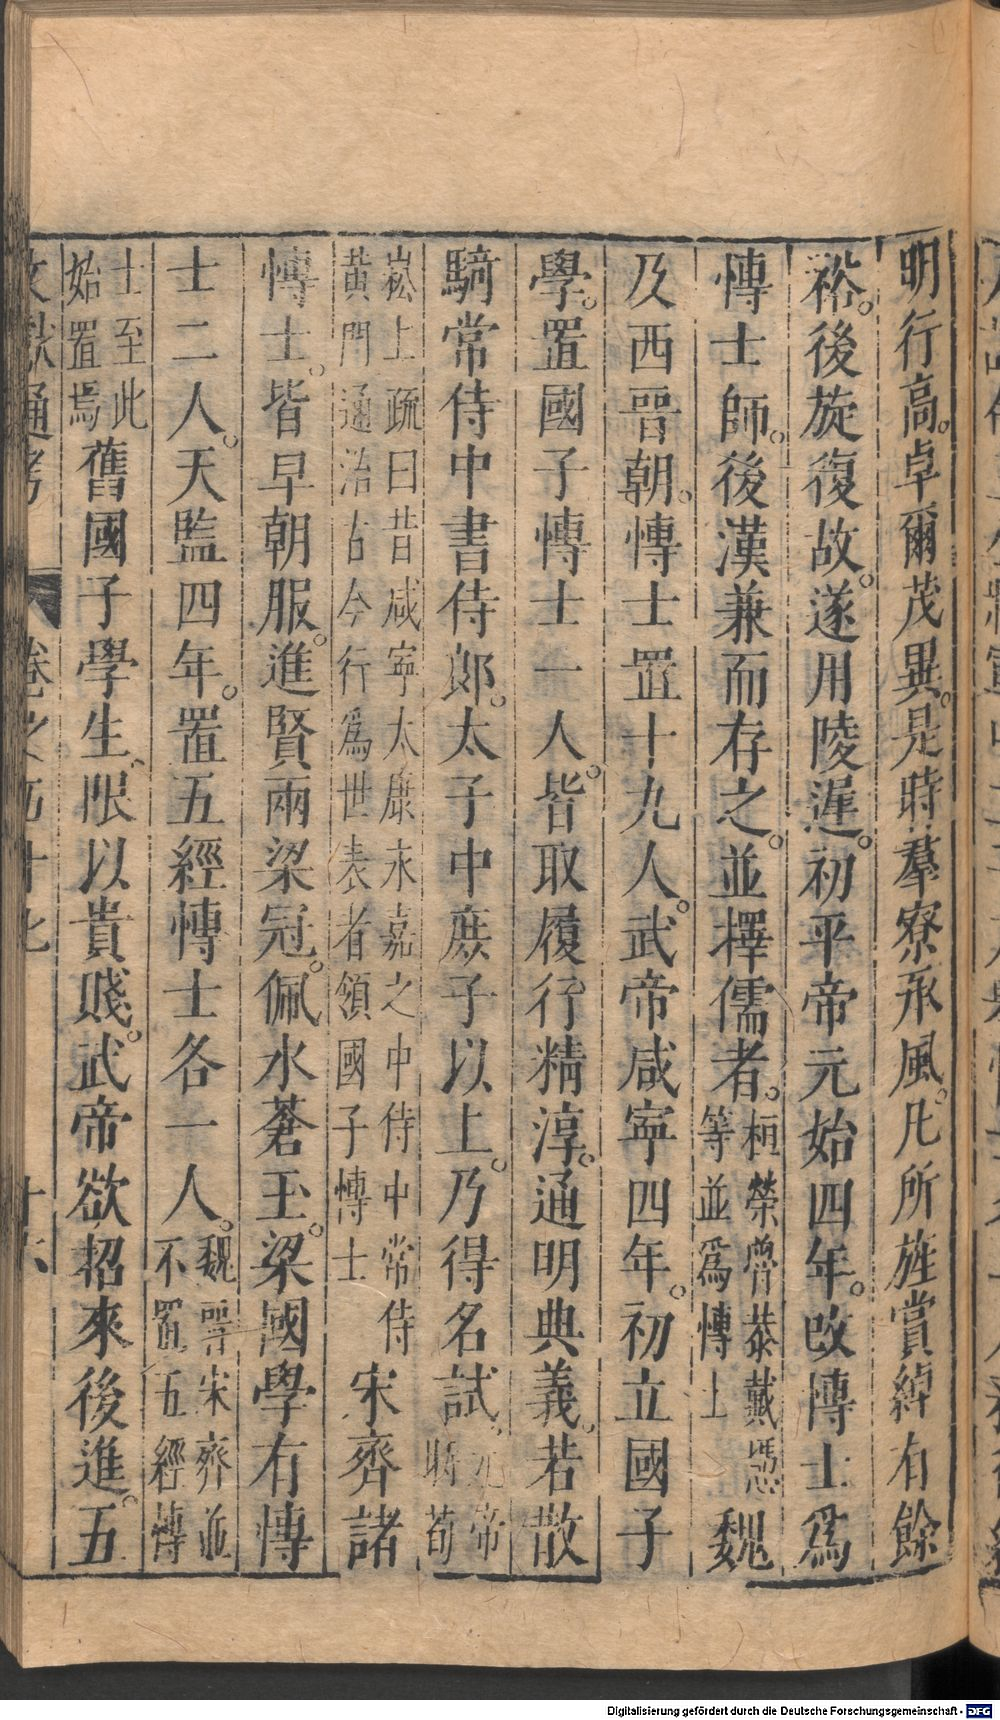 明行高卓爾茂異是時羣寮承風凡所旌賞綽有餘
裕後旋復故遂用陵遲初平帝元始四年改博士爲
博士師後漢兼而存之並擇儒者桓榮魯恭戴憑等並爲博士魏
及西晉朝博士置十九人武帝咸寧四年初立國子
學置國子博士一人皆取履行精淳通明典義若散
騎常侍中書侍郎太子中庶子以上乃得名試元帝時荀
崧上疏曰昔咸寧太康永嘉之中侍中常侍黃門通治古今行爲世表者領國子博士宋齊諸
博士皆早朝服進賢兩梁冠佩水蒼玉梁國學有博
士二人天監四年置五經博士各一人魏晉宋齊並不置五經博
士至此始置焉舊國子學生限以貴賤武帝欲招來後進五
文獻通考 卷之五十七 十六
Digitalisierung gefördert durch die Deutsche Forschungsgemeinschaft - DFG